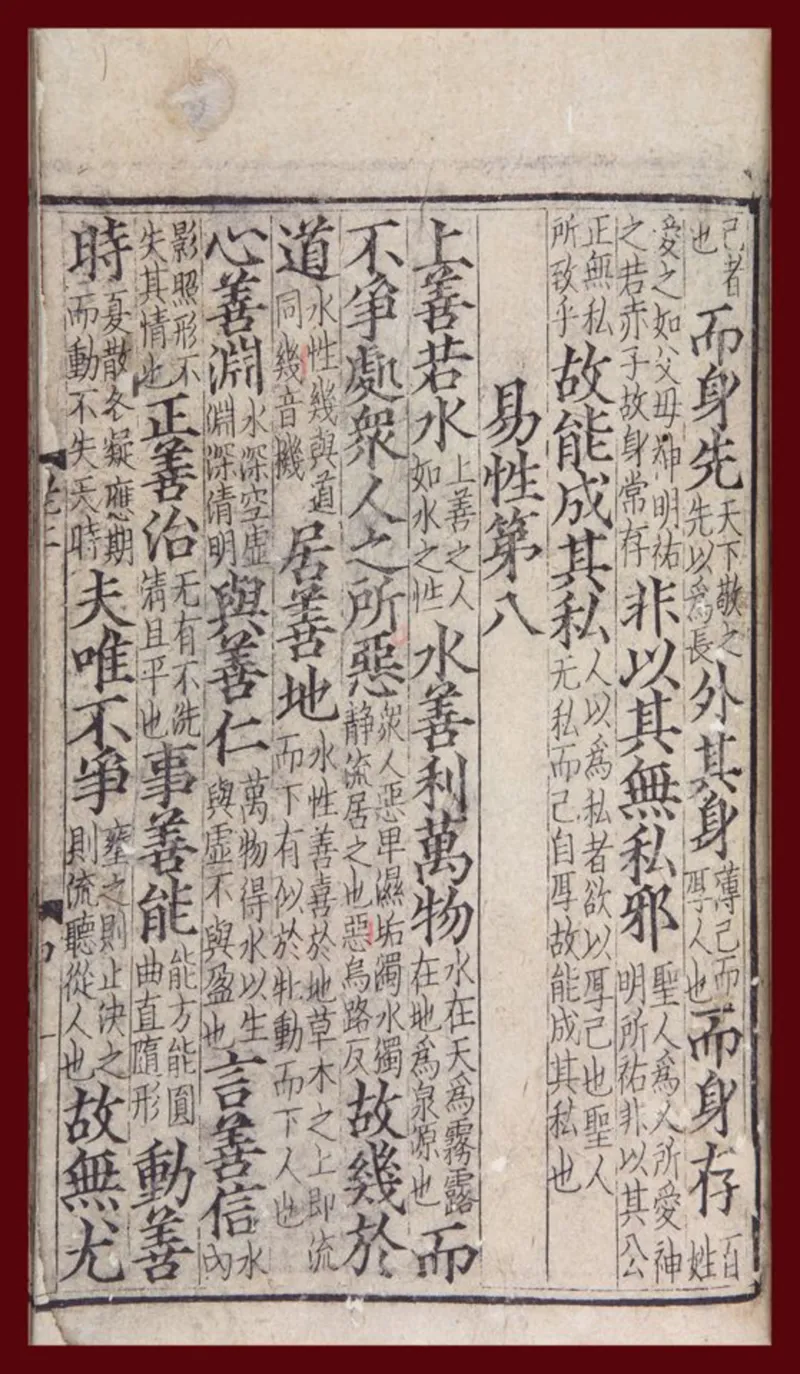 己者也而身先天下敬之先以爲長外其身薄己而厚人也而身存百姓
愛之如父母神明祐之若赤子故身常存非以其無私邪聖人爲人所愛神明所祐非以其公
正無私所致乎故能成其私人以爲私者欲以厚己也聖人无私而己自厚故能成其私也
易性第八
上善若水上善之人如水之性水善利萬物水在天爲霧露在地爲泉源也而
不爭處衆人之所惡衆人惡卑濕垢濁水獨静流居之也惡烏路反故幾於
道水性幾與道同幾音機居善地水性善喜於地草木之上即流而下有似於牝動而下人也
心善淵水深空虛淵深清明與善仁萬物得水以生與虛不與盈也言善信水內
影照形不失其情也正善治无有不洗清且平也事善能能方能圓曲直隨形動善
時夏散冬凝應期而動不失天時夫唯不爭壅之則止決之則流聽從人也故無尤